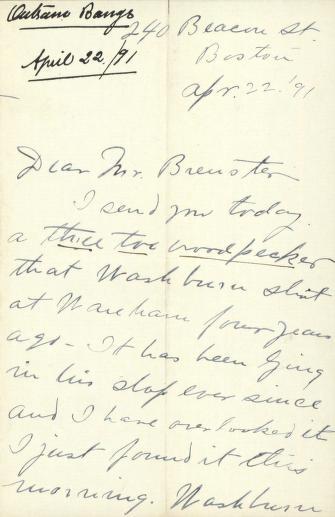 Outram Bangs
April 22/91
240 Beacon St.
Boston
Apr. 22. '91
Dear Mr. Brewster
I send you today
a three toe woodpecker
that Washburn shot
at Wareham four years
ago - It has been lying
in his shop ever since
and I have overlooked it
I just found it this
morning. Washburn